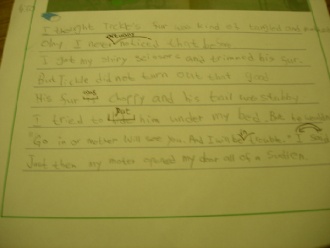 I thought Jickle's fur was kind of tangled and matted
Okay I never noticed that before
I got my shiny scissors and trimmed his fur.
But Jickle did not turn out that good
His fur was choppy and his tail was stubby
I tried to put him under my bed. But he
"Go in or mother will see you. And I will be in trouble." I
Just then my mother opened my door all of a sudden.